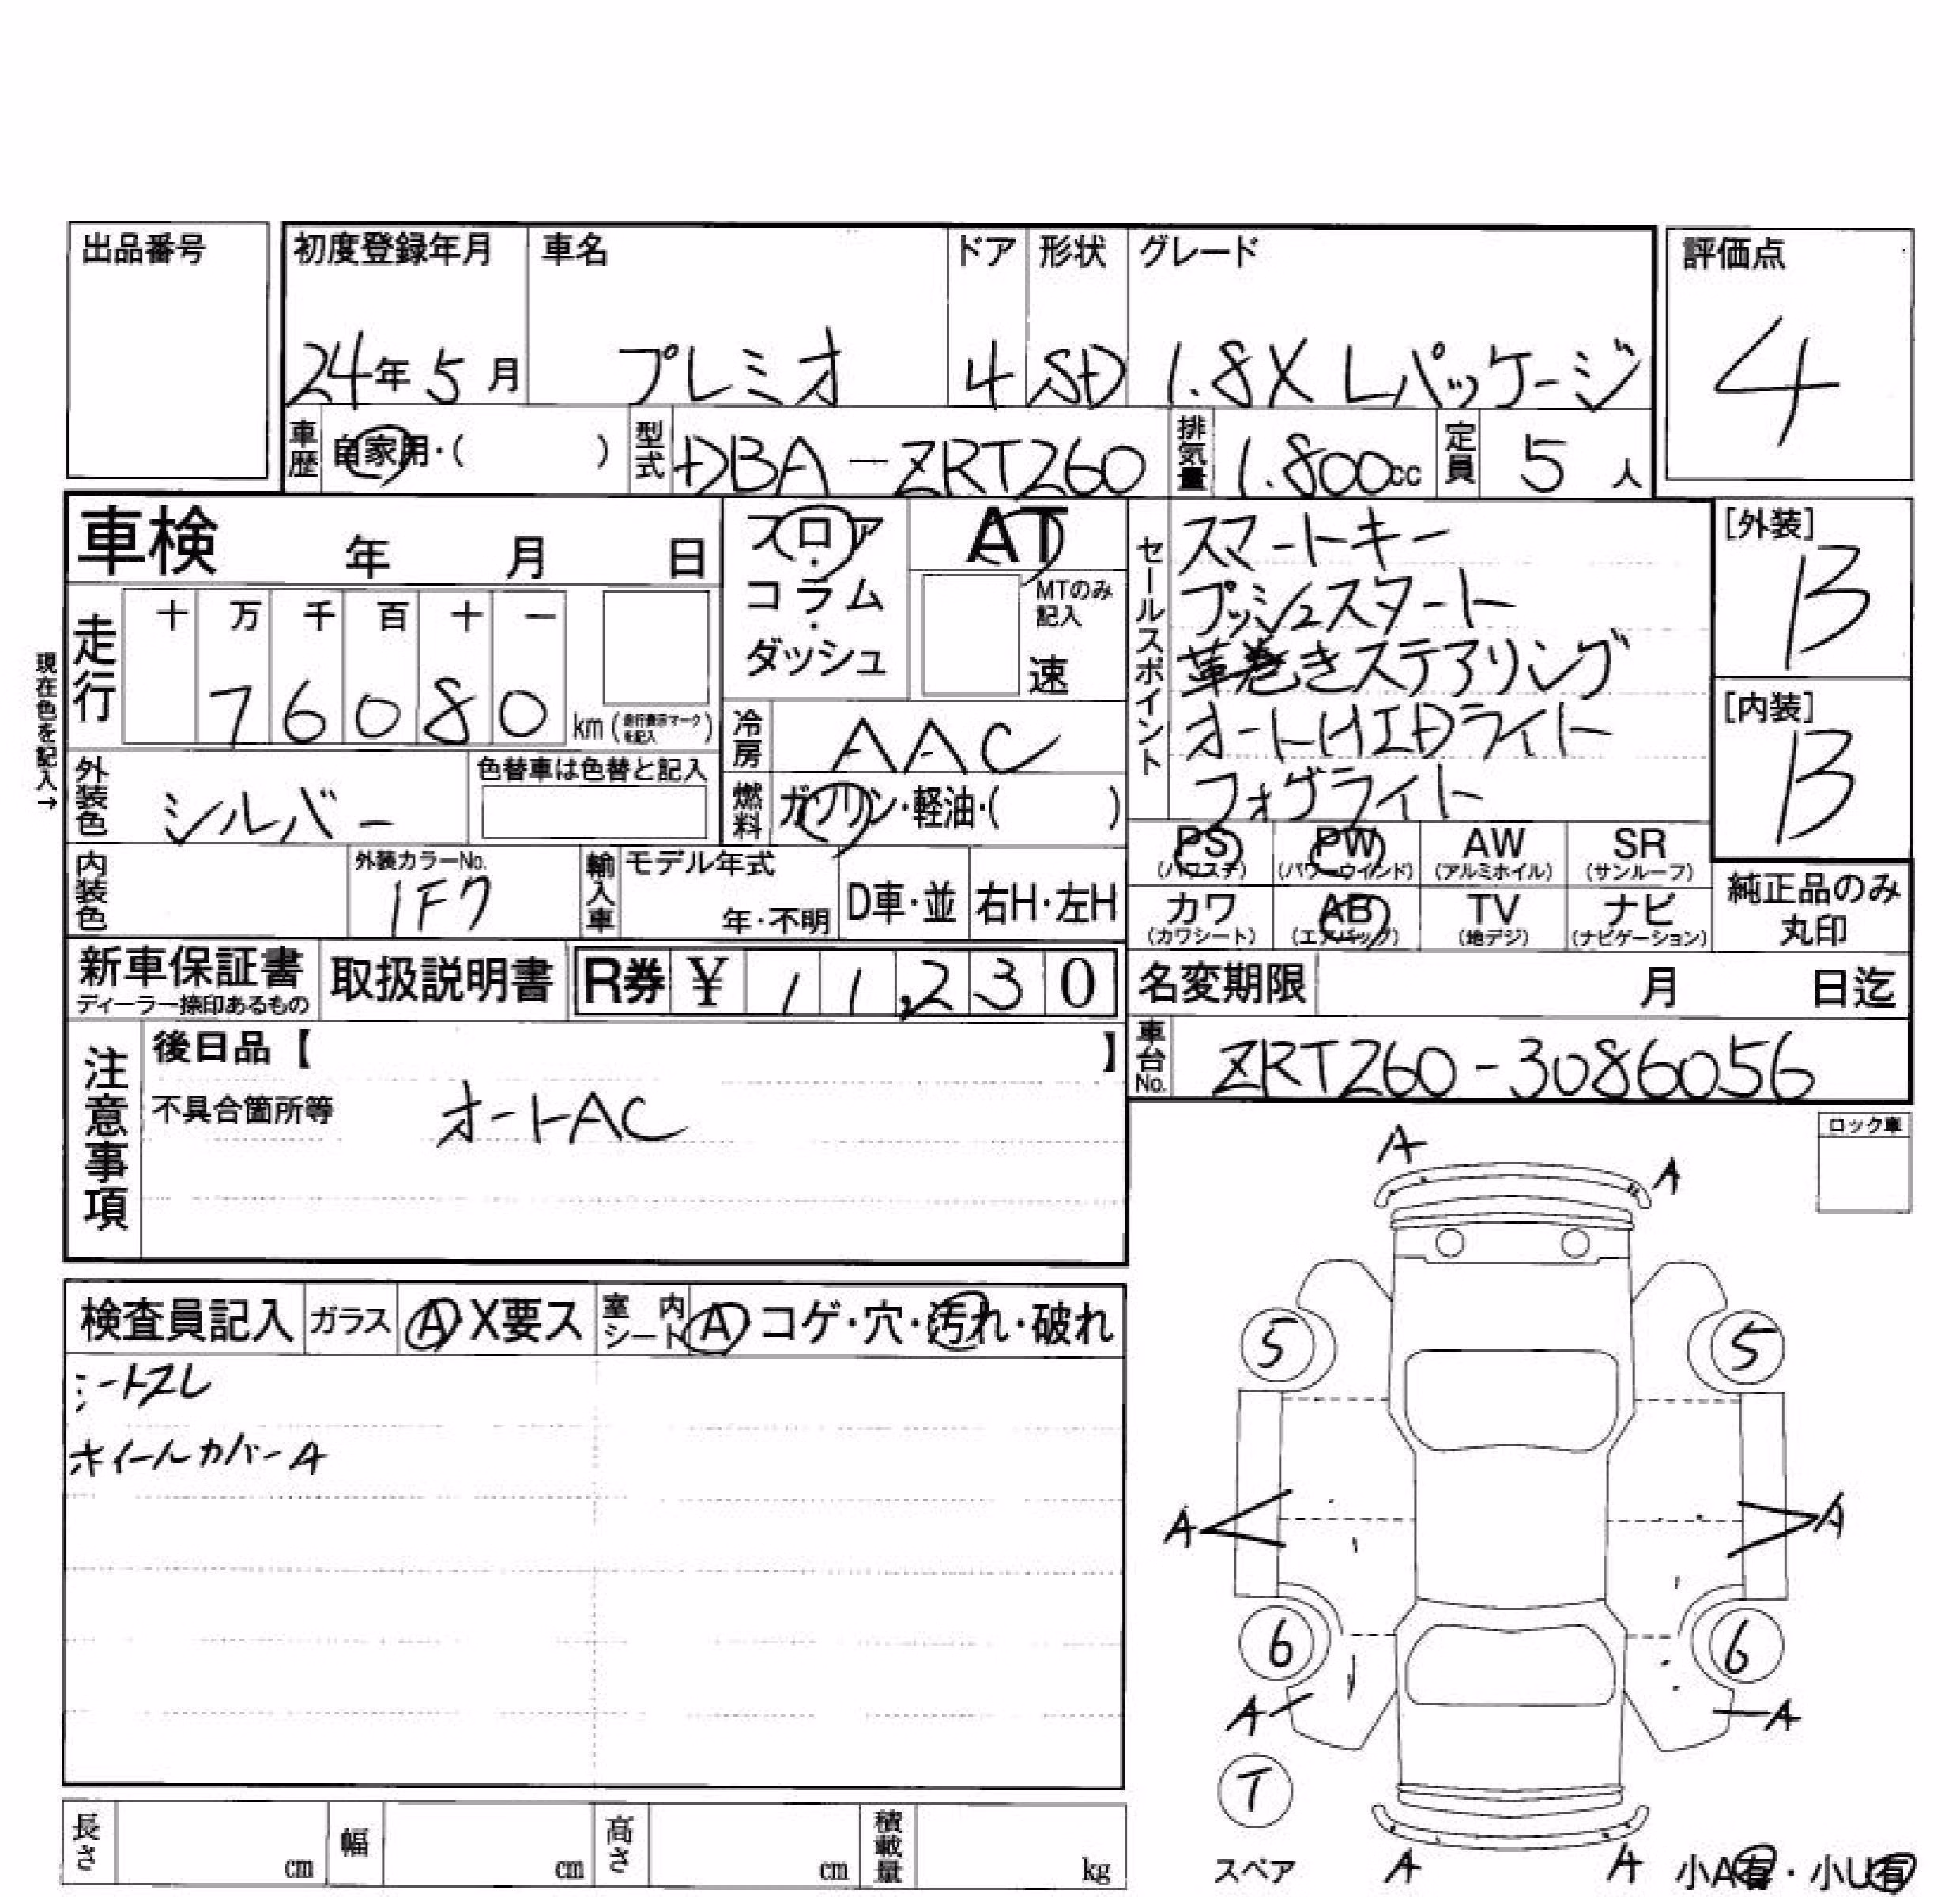 出品番号
初度登録年月 車名 ドア 形状 グレード
評価点
24年 5月 プレミオ 4 SD 1.8X Lパッケージ
4
車歴 自家用・( ) 型式 DBA-ZRT260 排気量 1.800cc 定員 5人
車検 年 月 日
フロア・コラム・ダッシュ
AT
MTのみ記入
速
現在色を記入→
走行 十 万 千 百 十 一
76080 km (走行表示マークを記入)
冷房 AAC
外装色 シルバー
色替車は色替と記入
燃料 ガソリン・軽油・( )
内装色
外装カラーNo.
1F7
輸入車 モデル年式
年・不明 D車・並 右H・左H
セールスポイント
スマートキー
プッシュスタート
革巻きステアリング
オートHIDライト
フォグライト
[外装]
B
[内装]
B
PS PW AW SR
(パワステ) (パワーウインド) (アルミホイル) (サンルーフ)
カワ AB TV ナビ
(カワシート) (エアバッグ) (地デジ) (ナビゲーション)
純正品のみ
丸印
新車保証書 取扱説明書 R券 ¥ 11,230
ディーラー捺印あるもの
名変期限 月 日迄
車台No. ZRT260-3086056
注意事項
後日品【 】
不具合箇所等 オートAC
ロック車
検査員記入 ガラス A X要ス 室内シート A コゲ・穴・汚れ・破れ
シートスレ
ホイールカバーA
A
A
5 5
A A
6 6
A A
T
スペア
A A
小A有・小U有
長さ cm 幅 cm 高さ cm 積載量 kg